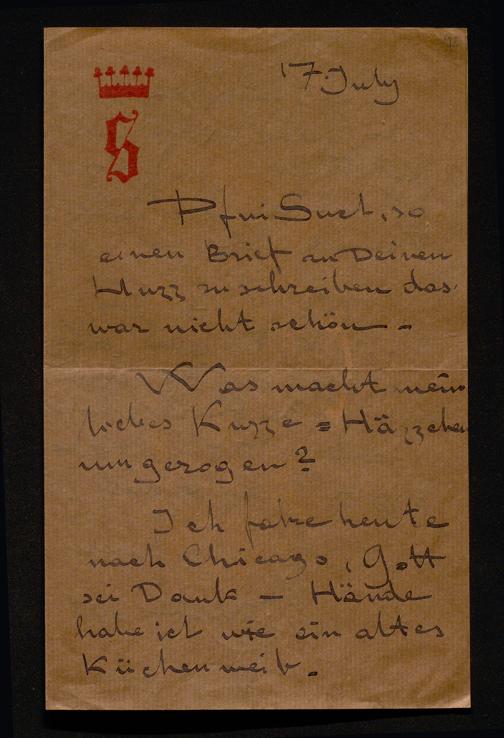 S
17 July
Pfui Suet, so
einen Brief an Deinen
Huzz zu schreiben das
war nicht schön –
Was macht mein
liebes Kuzze = Häzzchen
ungezogen?
Ich fahre heute
nach Chicago, Gott
sei Dank – Hände
habe ich wie ein altes
Küchenweib.